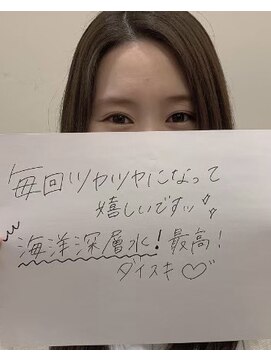 毎回ツヤツヤになって
嬉しいですッ♪
海洋深層水！最高！
ダイスキ♡